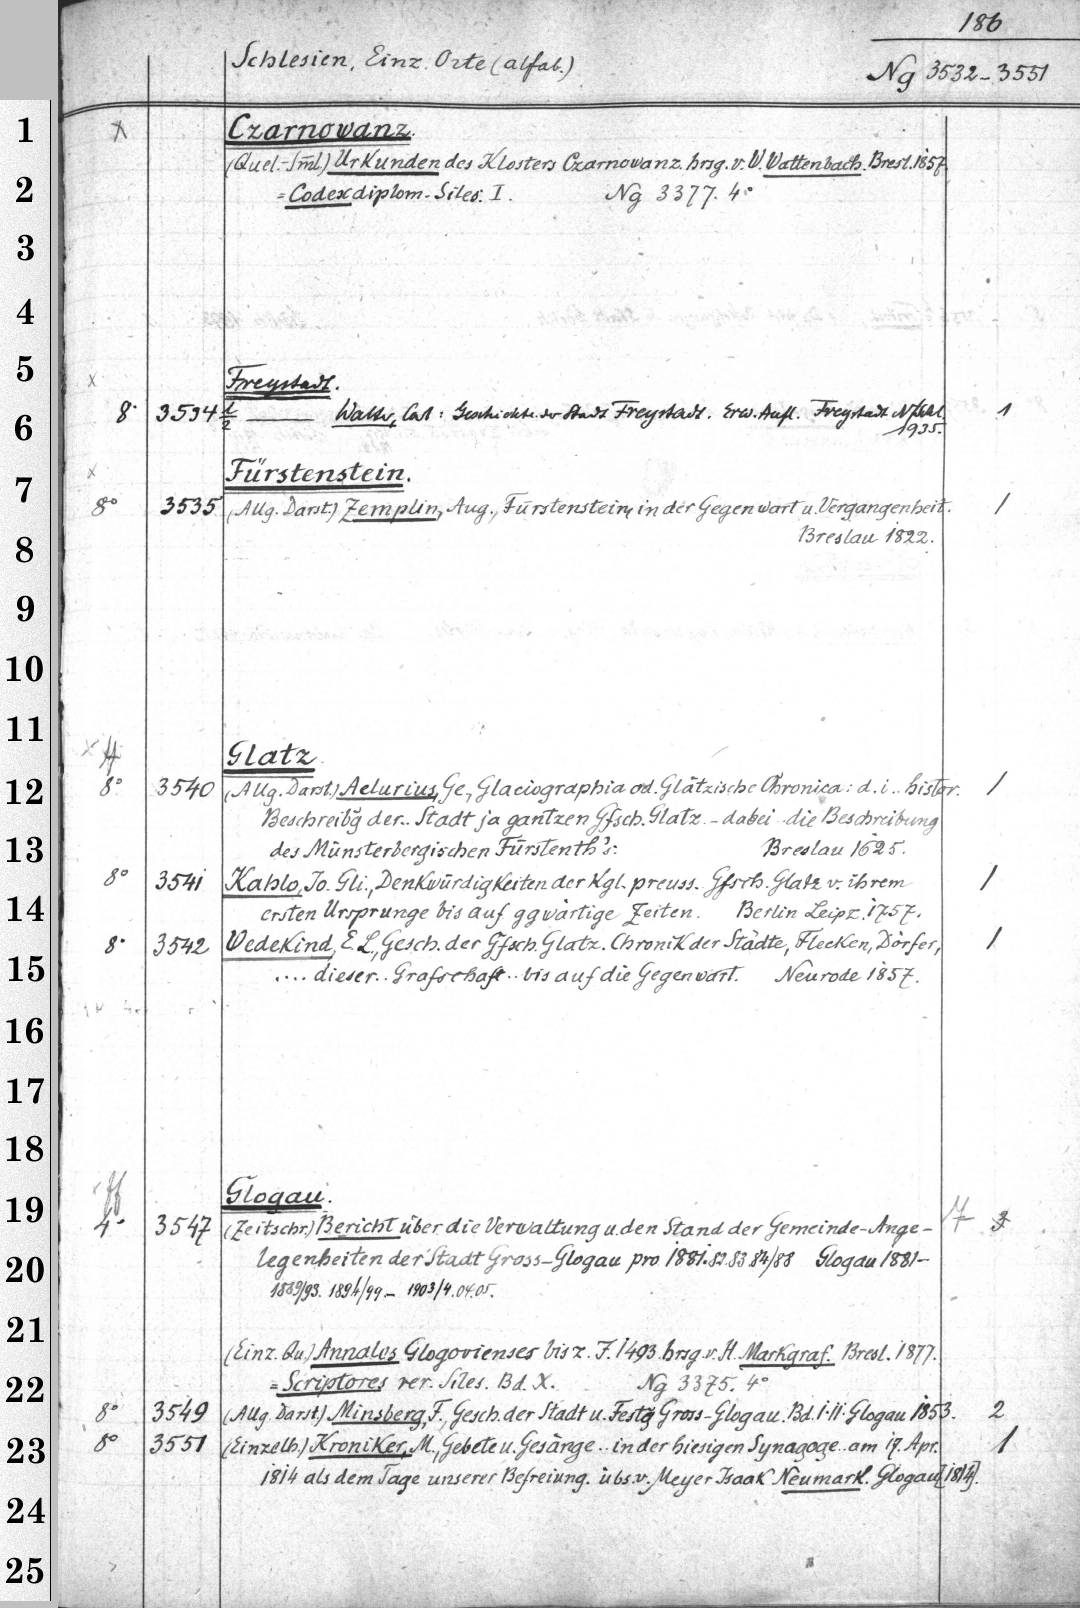 186
Schlesien, Einz. Orte (alfab.)
Ng 3532-3551
1 x Czarnowanz.
(Quel.-Sml.) Urkunden des Klosters Czarnowanz. hrsg. v. W. Wattenbach. Bresl. 1857.
2 = Codex diplom. Siles. I. Ng 3377. 4°
3
4
5 x Freystadt.
8° 3534 1/2 Carl: Geschichte der Stadt Freystadt. Erw. Aufl. Freystadt 1
6 1935.
7 x Fürstenstein.
8° 3535 (Allg. Darst.) Zemplin, Aug., Fürstenstein, in der Gegenwart u. Vergangenheit. 1
8 Breslau 1822.
9
10
11 x Glatz.
12 8° 3540 (Allg. Darst.) Aelurius, Ge., Glaciographia od. Glätzische Chronica: d. i.. histor. 1
Beschreibg der.. Stadt ja gantzen Gfsch. Glatz - dabei die Beschreibung
13 des Münsterbergischen Fürstenth's: Breslau 1625.
8° 3541 Kahlo, Jo. Gli., Denkwürdigkeiten der Kgl. preuss. Gfsch. Glatz v. ihrem 1
14 ersten Ursprunge bis auf ggwärtige Zeiten. Berlin Leipz. 1757.
8° 3542 Wedekind, E. L., Gesch. der Gfsch. Glatz. Chronik der Städte, Flecken, Dörfer, 1
15 .... dieser.. Grafschaft.. bis auf die Gegenwart. Neurode 1857.
16
17
18
19 Glogau.
4° 3547 (Zeitschr.) Bericht über die Verwaltung u. den Stand der Gemeinde-Ange-
20 legenheiten der Stadt Gross-Glogau pro 1881. 82. 83. 84/88 Glogau 1881-
1889/93. 1894/99.- 1903/4. 04.05.
21
(Einz. Qu.) Annales Glogovienses bis z. J. 1493. hrsg. v. H. Markgraf. Bresl. 1877.
22 = Scriptores rer. Siles. Bd. X. Ng 3375. 4°
8° 3549 (Allg. Darst.) Minsberg, F., Gesch. der Stadt u. Festg Gross-Glogau. Bd. I. II. Glogau 1853. 2
23 8° 3551 (Einzelh.) Kroniker, M., Gebete u. Gesänge.. in der hiesigen Synagoge.. am 17. Apr. 1
1814 als dem Tage unserer Befreiung. übs. v. Meyer Isaak Neumark. Glogau [1814].
24
25